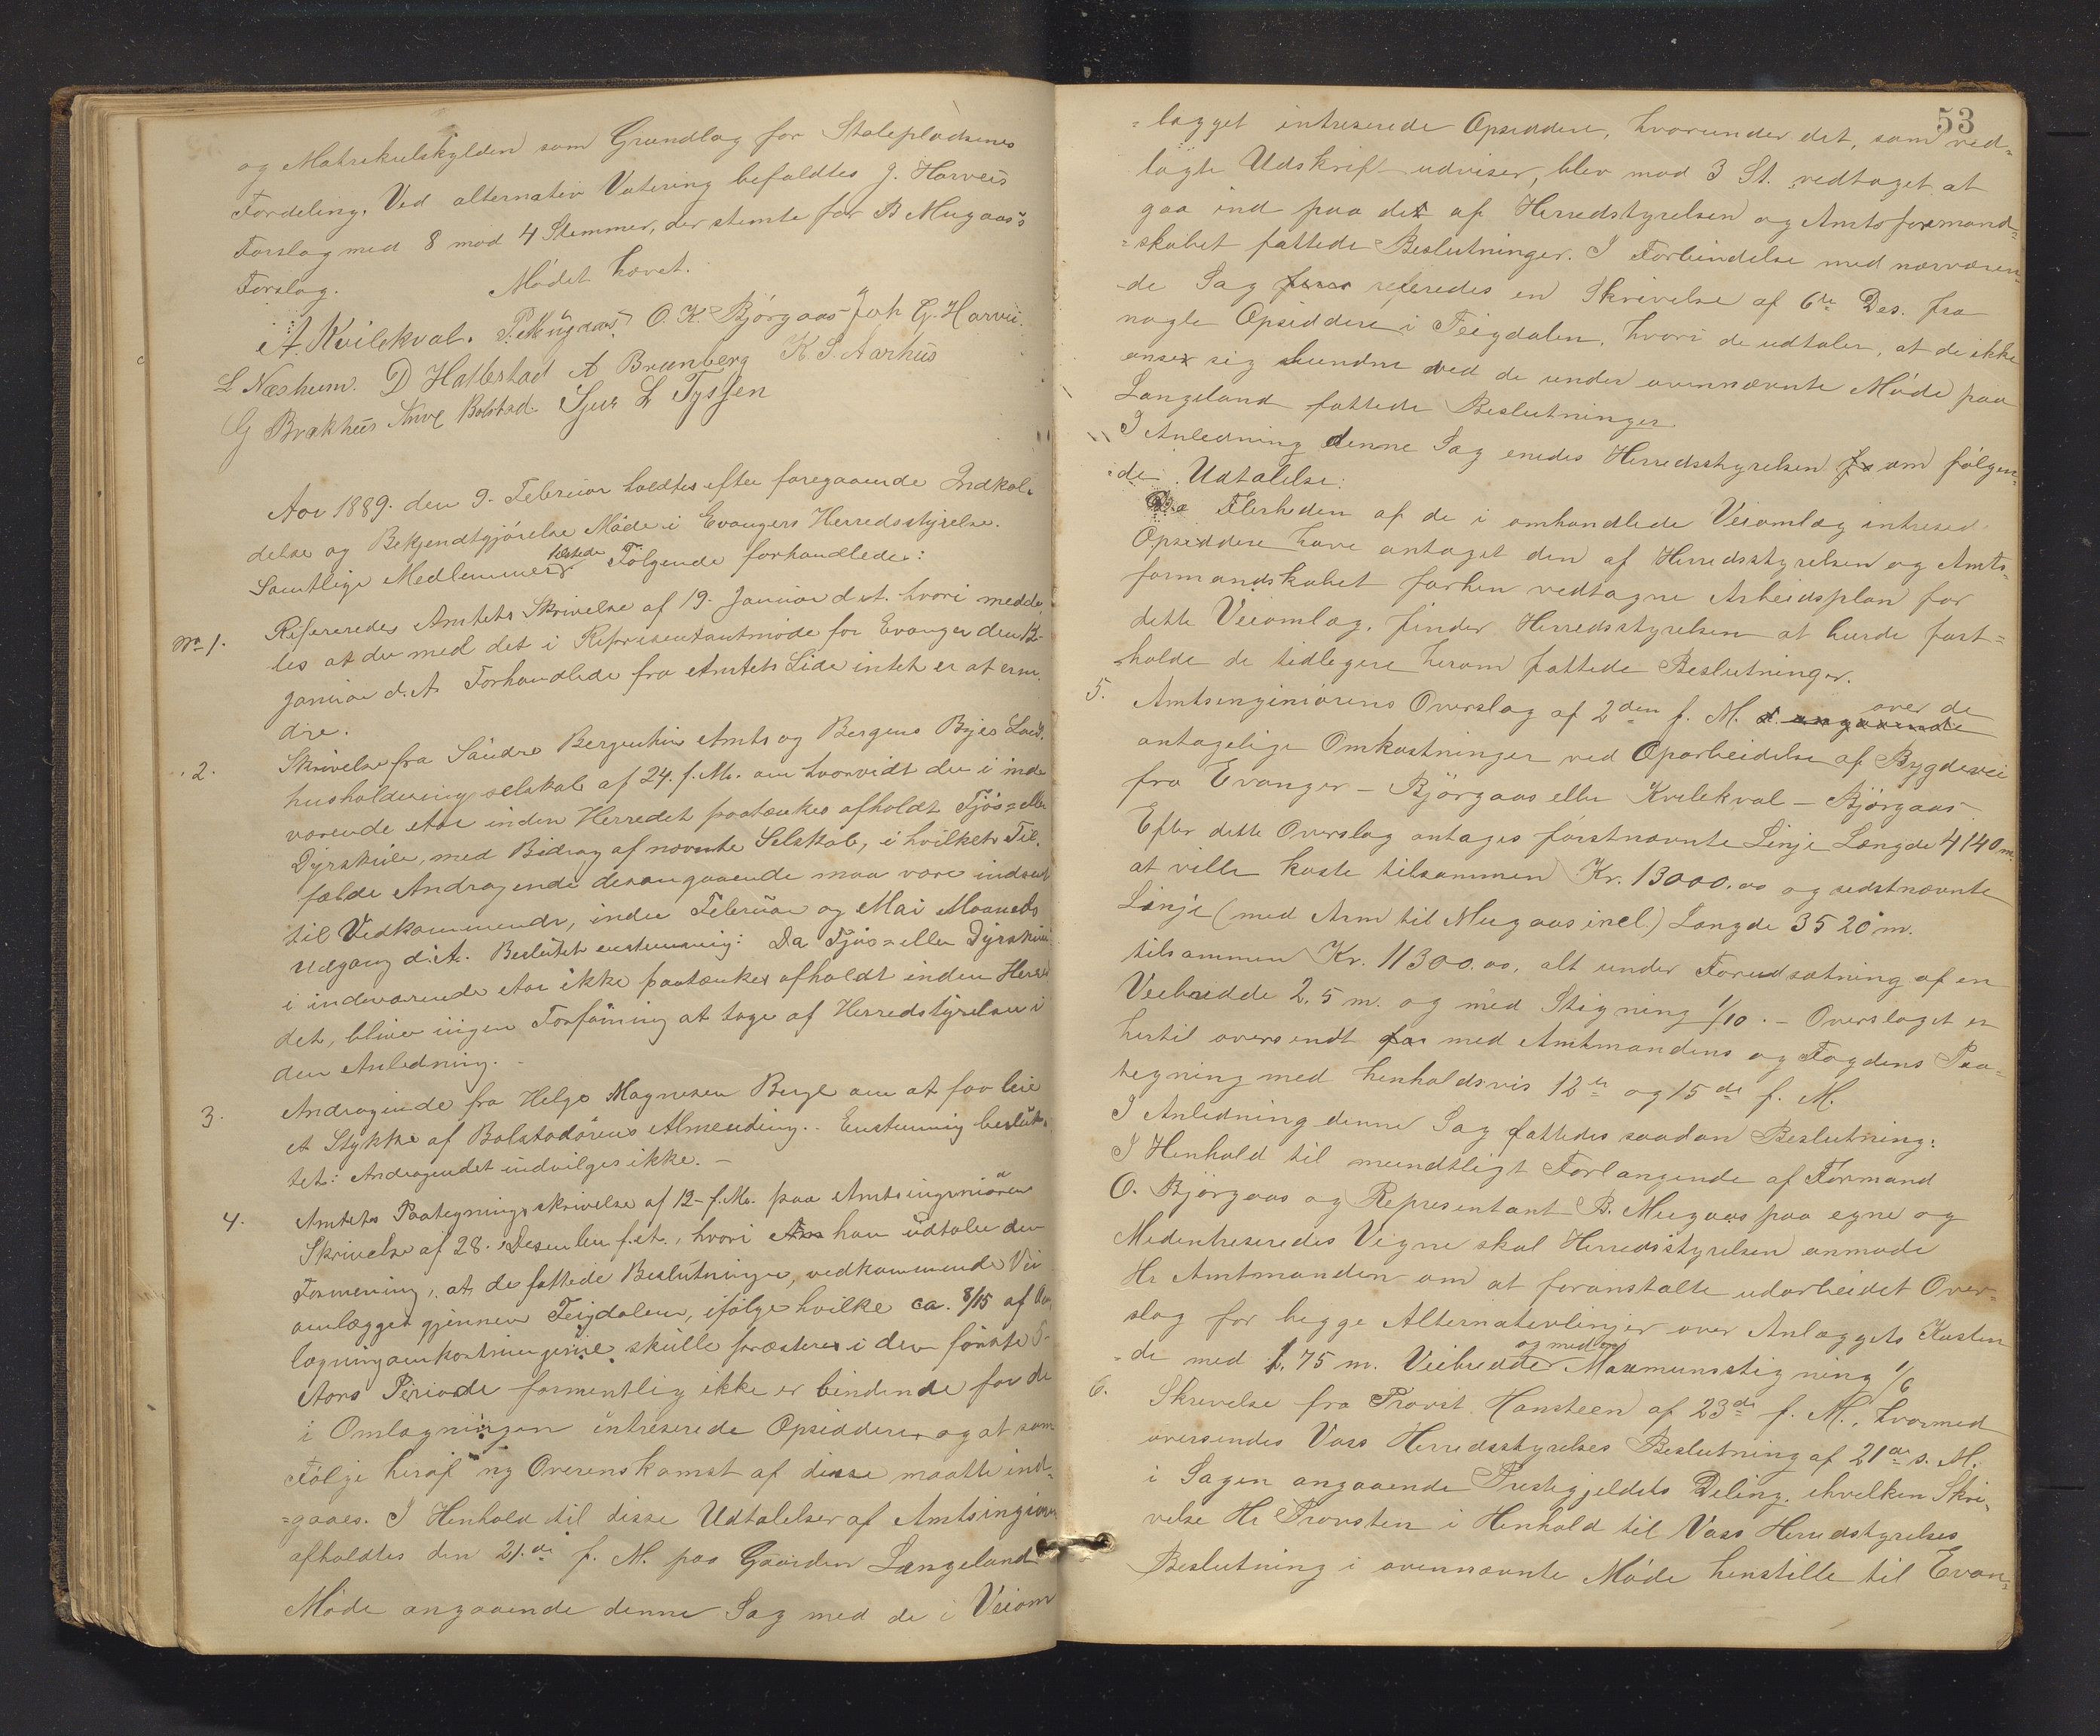 og Matrikulskylden som Grundlag for Stolepladsenes
Fordeling. Ved alternativ Votering befaldtes J. Horveis
Forslag med 8 mod 4 Stemmer, der stemte for B Mugaas's
Forslag.
Mödet hævet.
A. Kvilekval. B. Mugaas O. K. Björgaas Joh G. Horvei.
L Næsheim. D Hallestad A Brunborg K. S. Aarhus
G Brækhus Knut Bolstad. Sjur L Tyssen
Aar 1889. den 9. Februar holdtes efter foregaaende Indkal-
delse og Bekjendtgjörelse Möde i Evangers Herredsstyrelse.
Samtlige Medlemmer mödte. Fölgende forhandledes:
No 1. Refereredes Amtets Skrivelse af 19. Januar d. A. hvori medde-
les at der med det i Representantmöde for Evanger den 12-
Januar d. A. Forhandlede fra Amtets Side intet er at erin-
dre.
2. Skrivelse fra Söndre Bergenhus Amts og Bergens Byes Land-
husholdningsselskab af 24. f. M. om hvorvidt der i inde-
værende Aar inden Herredet paatænkes afholdt Fjös- eller
Dyrskue, med Bidrag af nævnte Selskab, i hvilket Til-
fælde Andragende desangaaende maa være indsendt
til Vedkommende, inden Februar og Mai Maaneds
Udgang d. A. Besluttet enstemmig: Da Fjös- eller Dyrskue
i indeværende Aar ikke paatænkes afholdt inden Herre-
det, bliver ingen Forföining at tage af Herredstyrelsen i
den Anledning.
3. Andragende fra Helge Magnesen Berge om at faa leie
et Stykke af Bolstadörens Almending.. Enstemmig beslut-
tet: Andragendet indvilges ikke. —
4. Amtets Paategningsskrivelse af 12- f. M. paa Amtsingeniörens
Skrivelse af 28. Desember f. A., hvori han udtaler den
Formening, at de fattede Beslutninger, vedkommende Vei
omlægget gjennem Teigdalen, ifölge hvilke ca. 8/15 af Om-
lægningsomkostningerne skulle præsteres i den förste 5-
Aars Periode formentlig ikke er bindende for de
i Omlægningen intreserede Opsiddere og at som
Fölge heraf ny Overenskomst af disse maatte ind-
=gaaes. I Henhold til disse Udtalelser af Amtsingeniören
afholdtes den 21.de f. M. paa Gaarden Langeland
Möde angaaende denne Sag med de i Veiom
53
=lægget intreserede Opsiddere, hvorunder det, som ved-
lagte Udskrift udviser, blev mod 3 St. vedtaget at
gaa ind paa det af Herredstyrelsen og Amtsformand=
=skabet fattede Beslutninger. I Forbindelse med nærværen=
-de Sag referedes en Skrivelse af 6te Des. fra
nogle Opsiddere i Teigdalen, hvori de udtaler, at de ikke
anser sig bundne ved de under ovennævnte Möde paa
Langeland fattede Beslutninger
I Anledning denne Sag enedes Herredsstyrelsen om fölgen=
=de Udtalelse:
Da Flerheden af de i omhandlede Veiomlæg intresed
Opsiddere have antaget den af Herredsstyrelsen og Amts-
formandskabet forhen vedtagne Arbeidsplan for
dette Veiomlæg, finder Herredsstyrelsen at burde fast=
holde de tidligere herom fattede Beslutninger.
5. Amtsingeniörens Overslag af 2den f. M. angaaende over de
antagelige Omkostninger ved Oparbeidelse af Bygdevei
fra Evanger – Björgaas eller Kvilekval – Björgaas
Efter dette Overslag antages förstnævnte Linje Længde 4140 m.
at ville koste tilsammen Kr. 13000.00 og sidstnævnte
Linje (med Arm til Mugaas incl.) Længde 3520 m.
tilsammen Kr. 11300.00, alt under Forudsætning af en
Veibredde 2.5 m. og med Stigning 1/10. – Overslaget er
hertil oversendt med Amtmandens og Fogdens Paa-
tegning med henholdsvis 12te og 15de f. M.
I Anledning denne Sag fattedes saadan Beslutning:
I Henhold til mundtligt Forlangende af Formand
O. Björgaas og Representant B. Mugaas paa egne og
Medintreseredes Vegne skal Herredsstyrelsen anmode
Hr Amtmanden om at foranstalte udarbeidet Over=
slag for begge Alternativlinjer over Anlæggets Kosten
=de med 1.75 m. Veibredde og med Maxmumsstigning 1/6
6. Skrivelse fra Provst Hansteen af 23de f. M., hvormed
oversendes Voss Herredsstyrelses Beslutning af 21de s. M.
i Sagen angaaende Prestegjeldets Deling, ihvilken Skri-
velse Hr Provsten i Henhold til Voss Herredsstyrelses
Beslutning i ovennævnte Möde henstille til Evan=